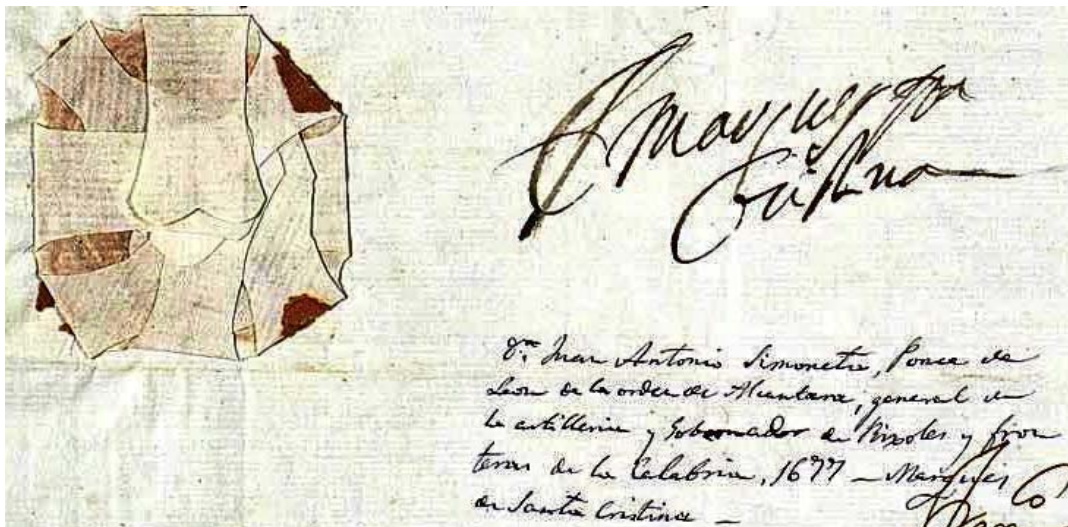 El Marques Sta
Cristina
Dn. Juan Antonio Simoneta, Ponce de
Leon de la orden de Alcantara, general de
la artilleria y Gobernador de Napoles y fron
teras de la Calabria, 1677 — Marques
de Santa Cristina —